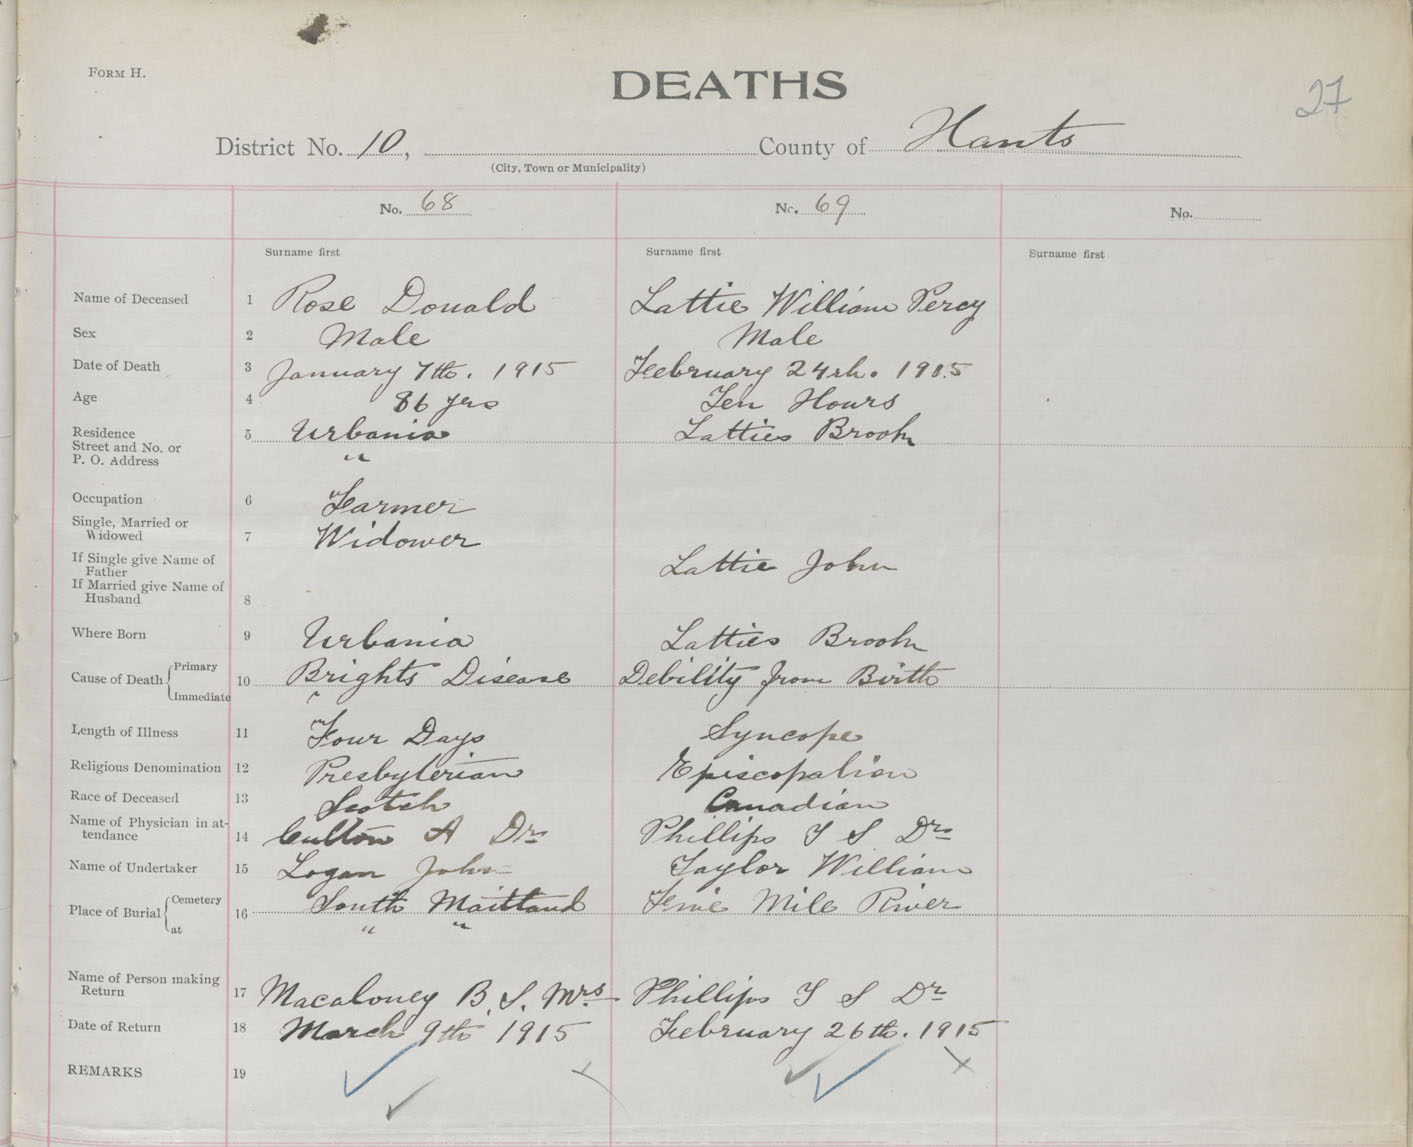 FORM H.
DEATHS
27
District No. 10, County of Hants
(City, Town or Municipality)
No. 68 No. 69 No.
Surname first Surname first Surname first
Name of Deceased 1 Rose Donald Lattie William Percy
Sex 2 Male Male
Date of Death 3 January 7th. 1915 February 24th. 1915
Age 4 86 yrs Ten Hours
Residence 5 Urbania Latties Brook
Street and No. or
P. O. Address "
Occupation 6 Farmer
Single, Married or
Widowed 7 Widower
If Single give Name of
Father Lattie John
If Married give Name of
Husband 8
Where Born 9 Urbania Latties Brook
Cause of Death Primary 10 Brights Disease Debility from Birth
Immediate "
Length of Illness 11 Four Days Syncope
Religious Denomination 12 Presbyterian Episcopalian
Race of Deceased 13 Scotch Canadian
Name of Physician in at-
tendance 14 A Dr. Phillips T S Dr.
Name of Undertaker 15 Logan John Taylor William
Place of Burial Cemetery 16 South Maitland Mile River
at " "
Name of Person making
Return 17 Macaloney B. S. Mrs. Phillips T S Dr.
Date of Return 18 March 9th 1915 February 26th. 1915
REMARKS 19